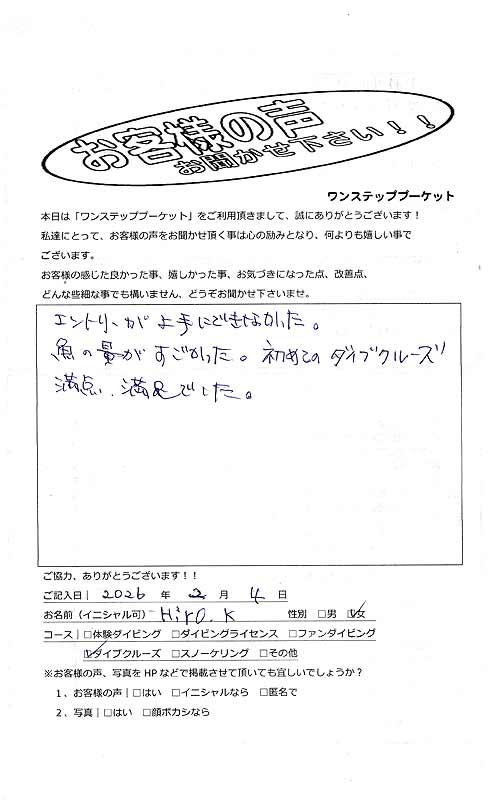 お客様の声
お聞かせ下さい！！
ワンステッププーケット
本日は「ワンステッププーケット」をご利用頂きまして、誠にありがとうございます！
私達にとって、お客様の声をお聞かせ頂く事は心の励みとなり、何よりも嬉しい事で
ございます。
お客様の感じた良かった事、嬉しかった事、お気づきになった点、改善点、
どんな些細な事でも構いません、どうぞお聞かせ下さいませ。
エントリーが上手にできなかった。
魚の量がすごかった。初めてのダイブクルーズ
満点、満足でした。
ご協力、ありがとうございます！！
ご記入日｜2026年2月4日
お名前（イニシャル可）Hiro.K 性別 □男 ☑女
コース｜□体験ダイビング □ダイビングライセンス □ファンダイビング
☑ダイブクルーズ □スノーケリング □その他
※お客様の声、写真をHPなどで掲載させて頂いても宜しいでしょうか？
１、お客様の声｜□はい □イニシャルなら □匿名で
２、写真｜□はい □顔ボカシなら